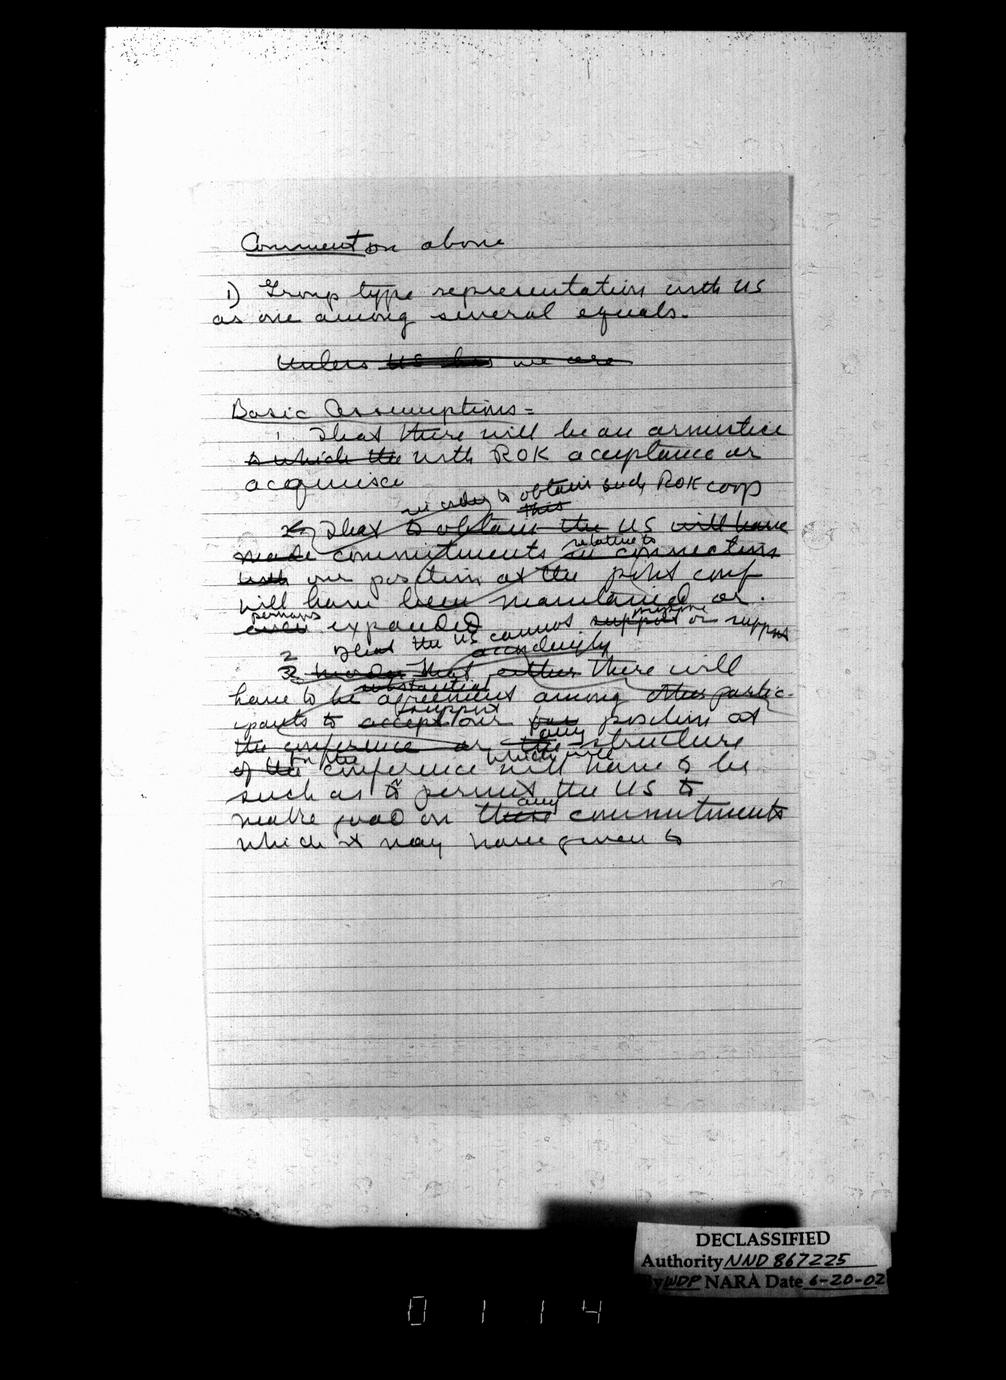 Comment on above
1) Group type representation with US
as one among several equals.
Unless US has we are
Basic Assumptions =
1. That there will be an armistice
which the with ROK acceptance or
acquiesce
in order to obtain such ROK coop
this
2. That to obtain the US will have
relative to
made commitments in connection
with our position at the polit conf
will have been maintained or
perhaps minimize
even expanded
That the US cannot support or support
2 accordingly
3 in order That either there will
substantial
have to be agreement among other partic-
support
ipants to accept our position at
any
the conference or the structure
for the which will
of the conference will have to be
such as to permit the US to
any
make good on these commitments
which it may have given to
DECLASSIFIED
Authority NND 867225
By WDP NARA Date 6-20-02
0 1 1 4